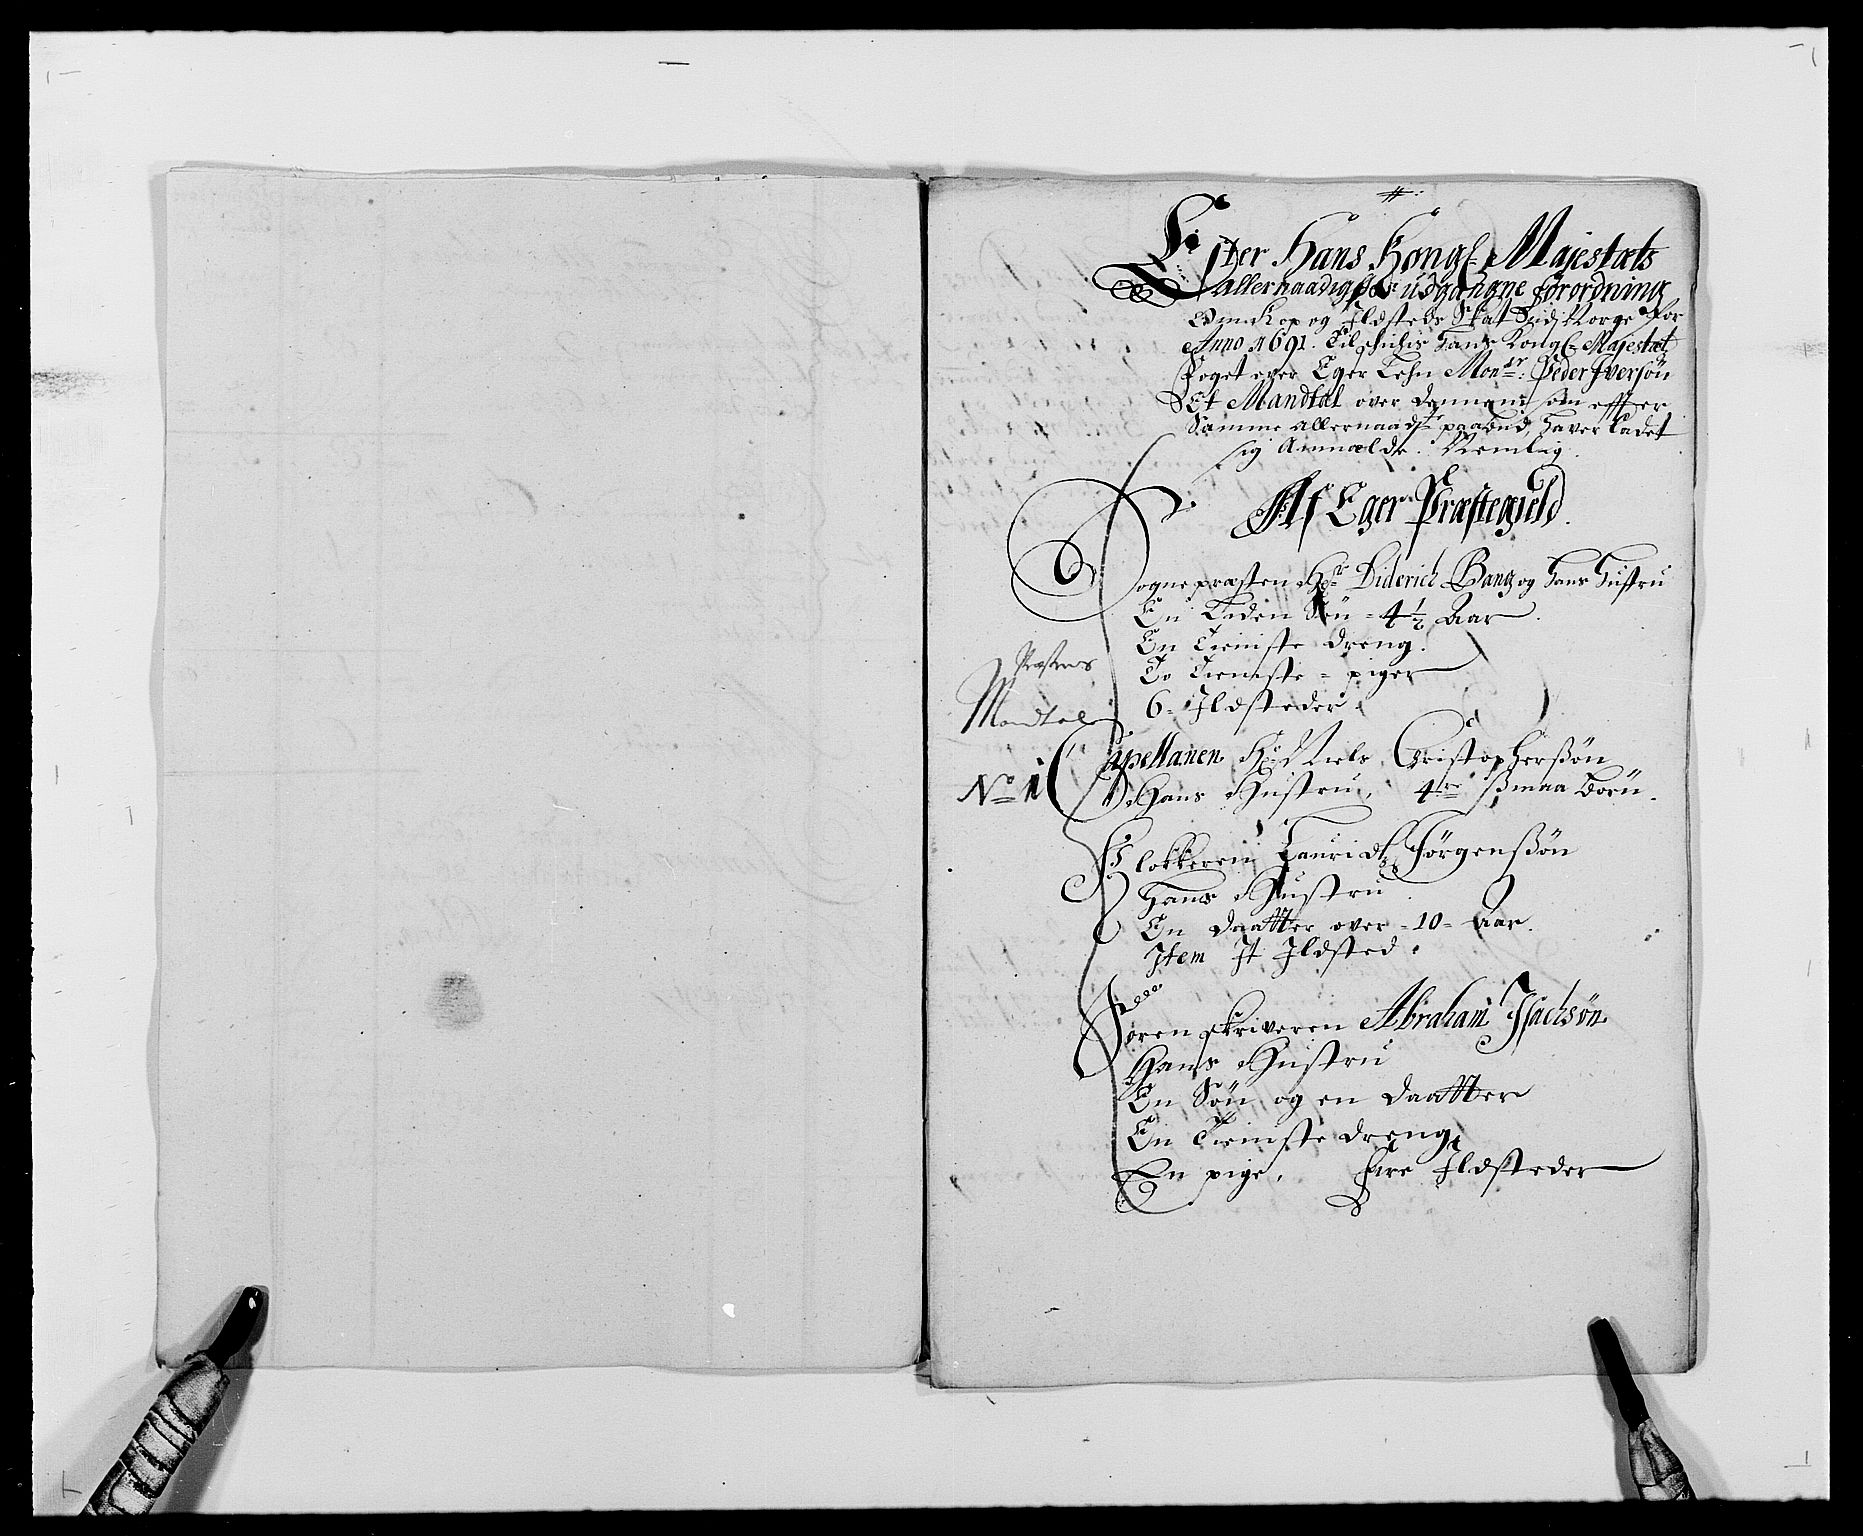 Efter Hans Kongl: Majestæts
allernaadigste udgangne forordning
Om Kop og Ildsteds Skat udj Norge for
Anno 1691. Tilschichis Hans Kongl: Majestæt
Foget over Eger Lehn Monsr: Peder Iversøn
Et Mandtal over dennem som effter
Samme allernaadste paabud, haver ladet
sig Anmælde. Nemlig.
Af Eger Præstegield.
Sognepræsten Hr Diderich Bang og Hans Hustru
En Liden Søn = 4½ Aar
En Tieniste dreng.
To Tieniste = piger
6 = Ildsteder
Præstens
Mandtal
No 1
Capellanen Hr Niels Christophersøn
Hans Hustru, 4re Smaa Børn.
Klokkeren Lauridtz Jørgensøn
Hans Hustru
En daatter over = 10 = Aar.
Item It Ildsted.
Sorenskriveren Abraham Isachsøn
Hans Hustru
En Søn og en daatter
En Tieniste dreng
En pige, fire Ildsteder